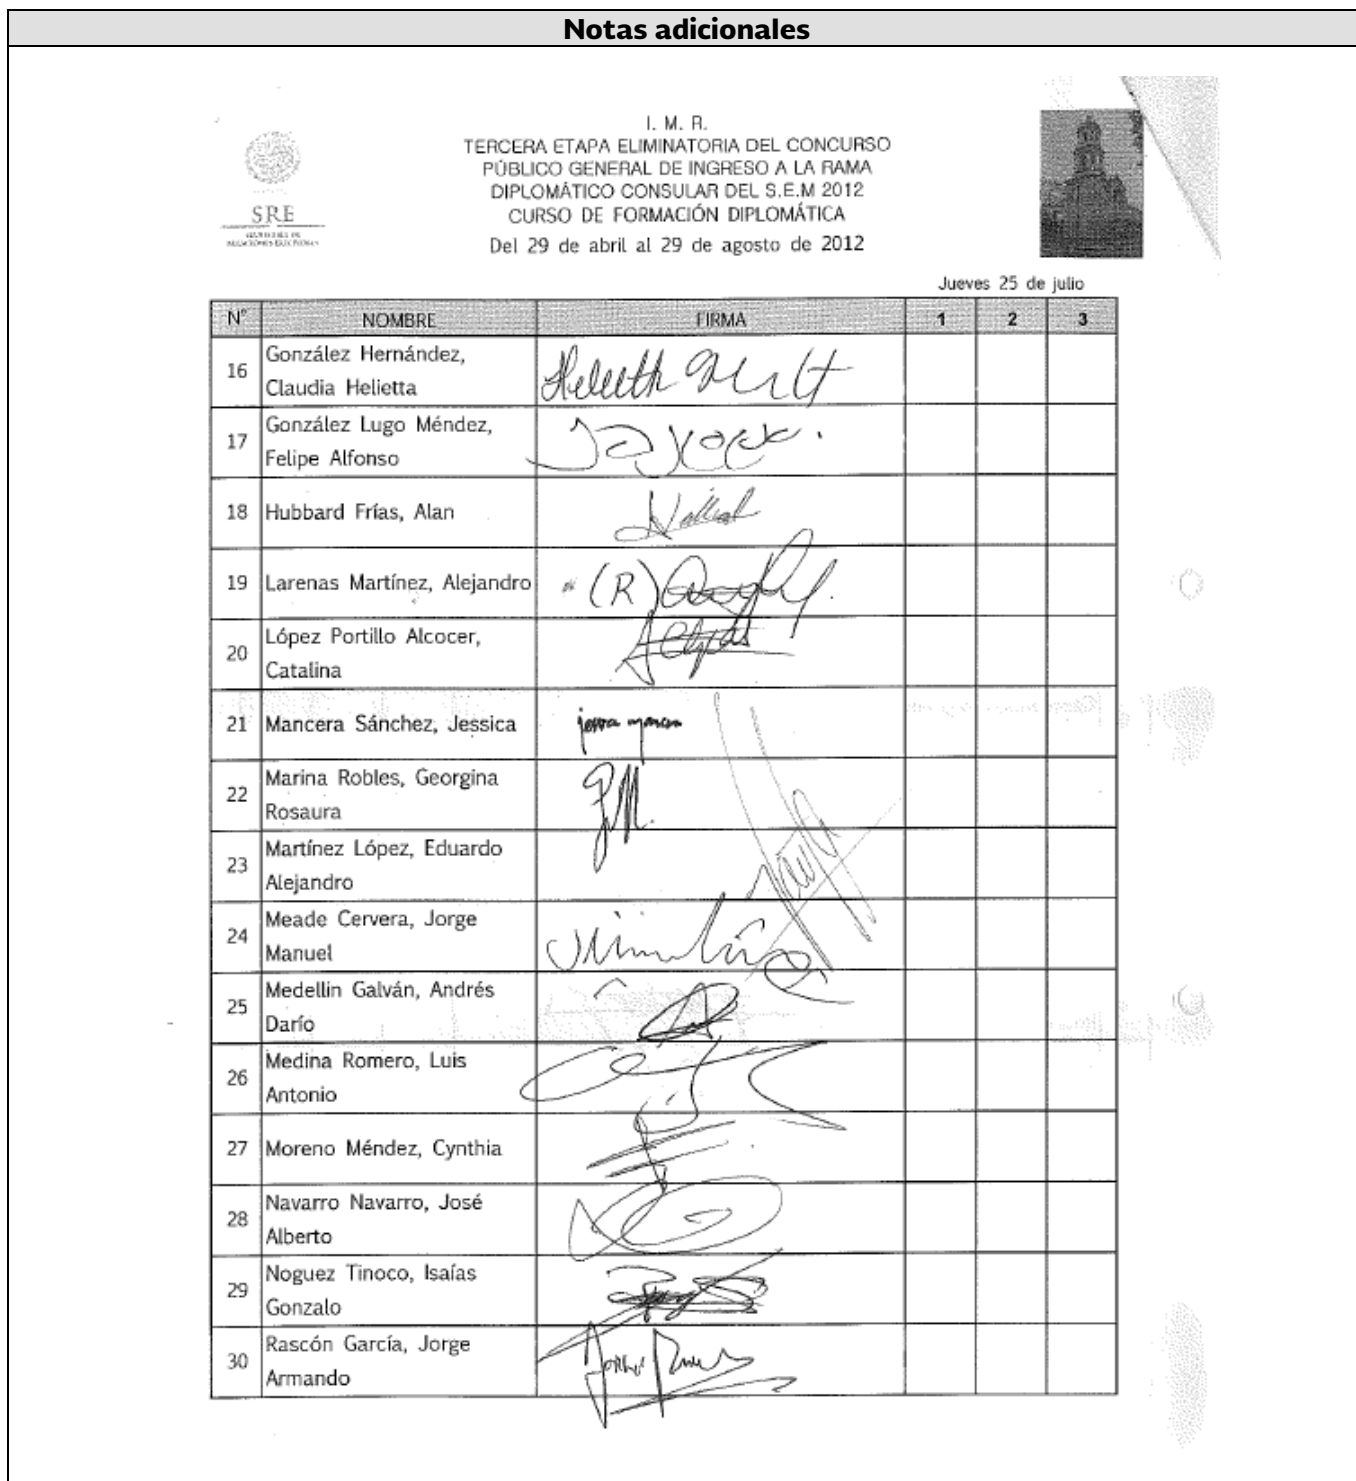 Notas adicionales
I. M. R.
TERCERA ETAPA ELIMINATORIA DEL CONCURSO
PÚBLICO GENERAL DE INGRESO A LA RAMA
DIPLOMÁTICO CONSULAR DEL S.E.M 2012
CURSO DE FORMACIÓN DIPLOMÁTICA
Del 29 de abril al 29 de agosto de 2012
SRE
SECRETARÍA DE
RELACIONES EXTERIORES
Jueves 25 de julio
N° NOMBRE FIRMA 1 2 3
16 González Hernández,
Claudia Helietta
17 González Lugo Méndez,
Felipe Alfonso
18 Hubbard Frías, Alan
19 Larenas Martínez, Alejandro (R)
20 López Portillo Alcocer,
Catalina
21 Mancera Sánchez, Jessica
22 Marina Robles, Georgina
Rosaura
23 Martínez López, Eduardo
Alejandro
24 Meade Cervera, Jorge
Manuel
25 Medellin Galván, Andrés
Darío
26 Medina Romero, Luis
Antonio
27 Moreno Méndez, Cynthia
28 Navarro Navarro, José
Alberto
29 Noguez Tinoco, Isaías
Gonzalo
30 Rascón García, Jorge
Armando